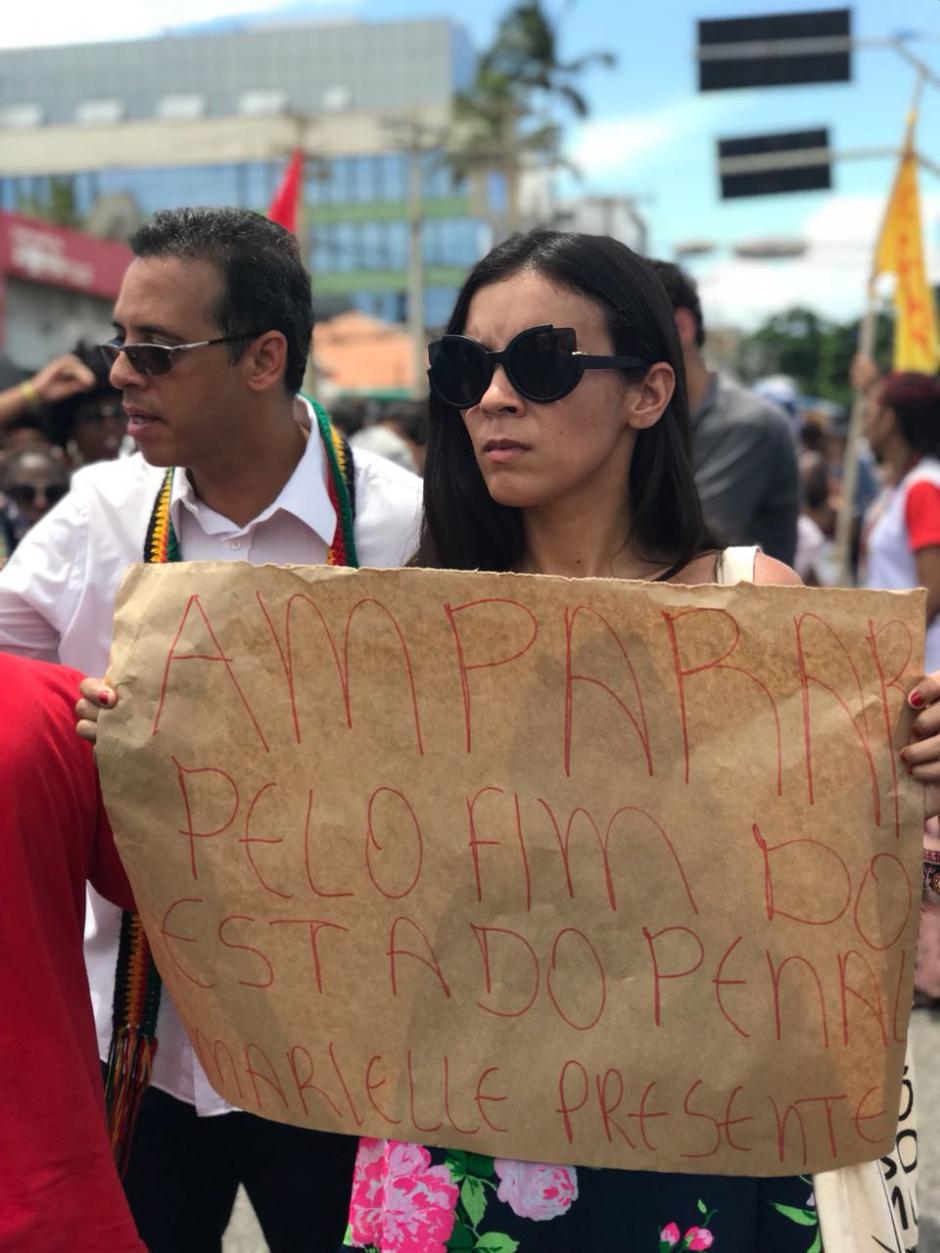 AMPARAR
PELO FIM DO
ESTADO PENAL
MARIELLE PRESENTE